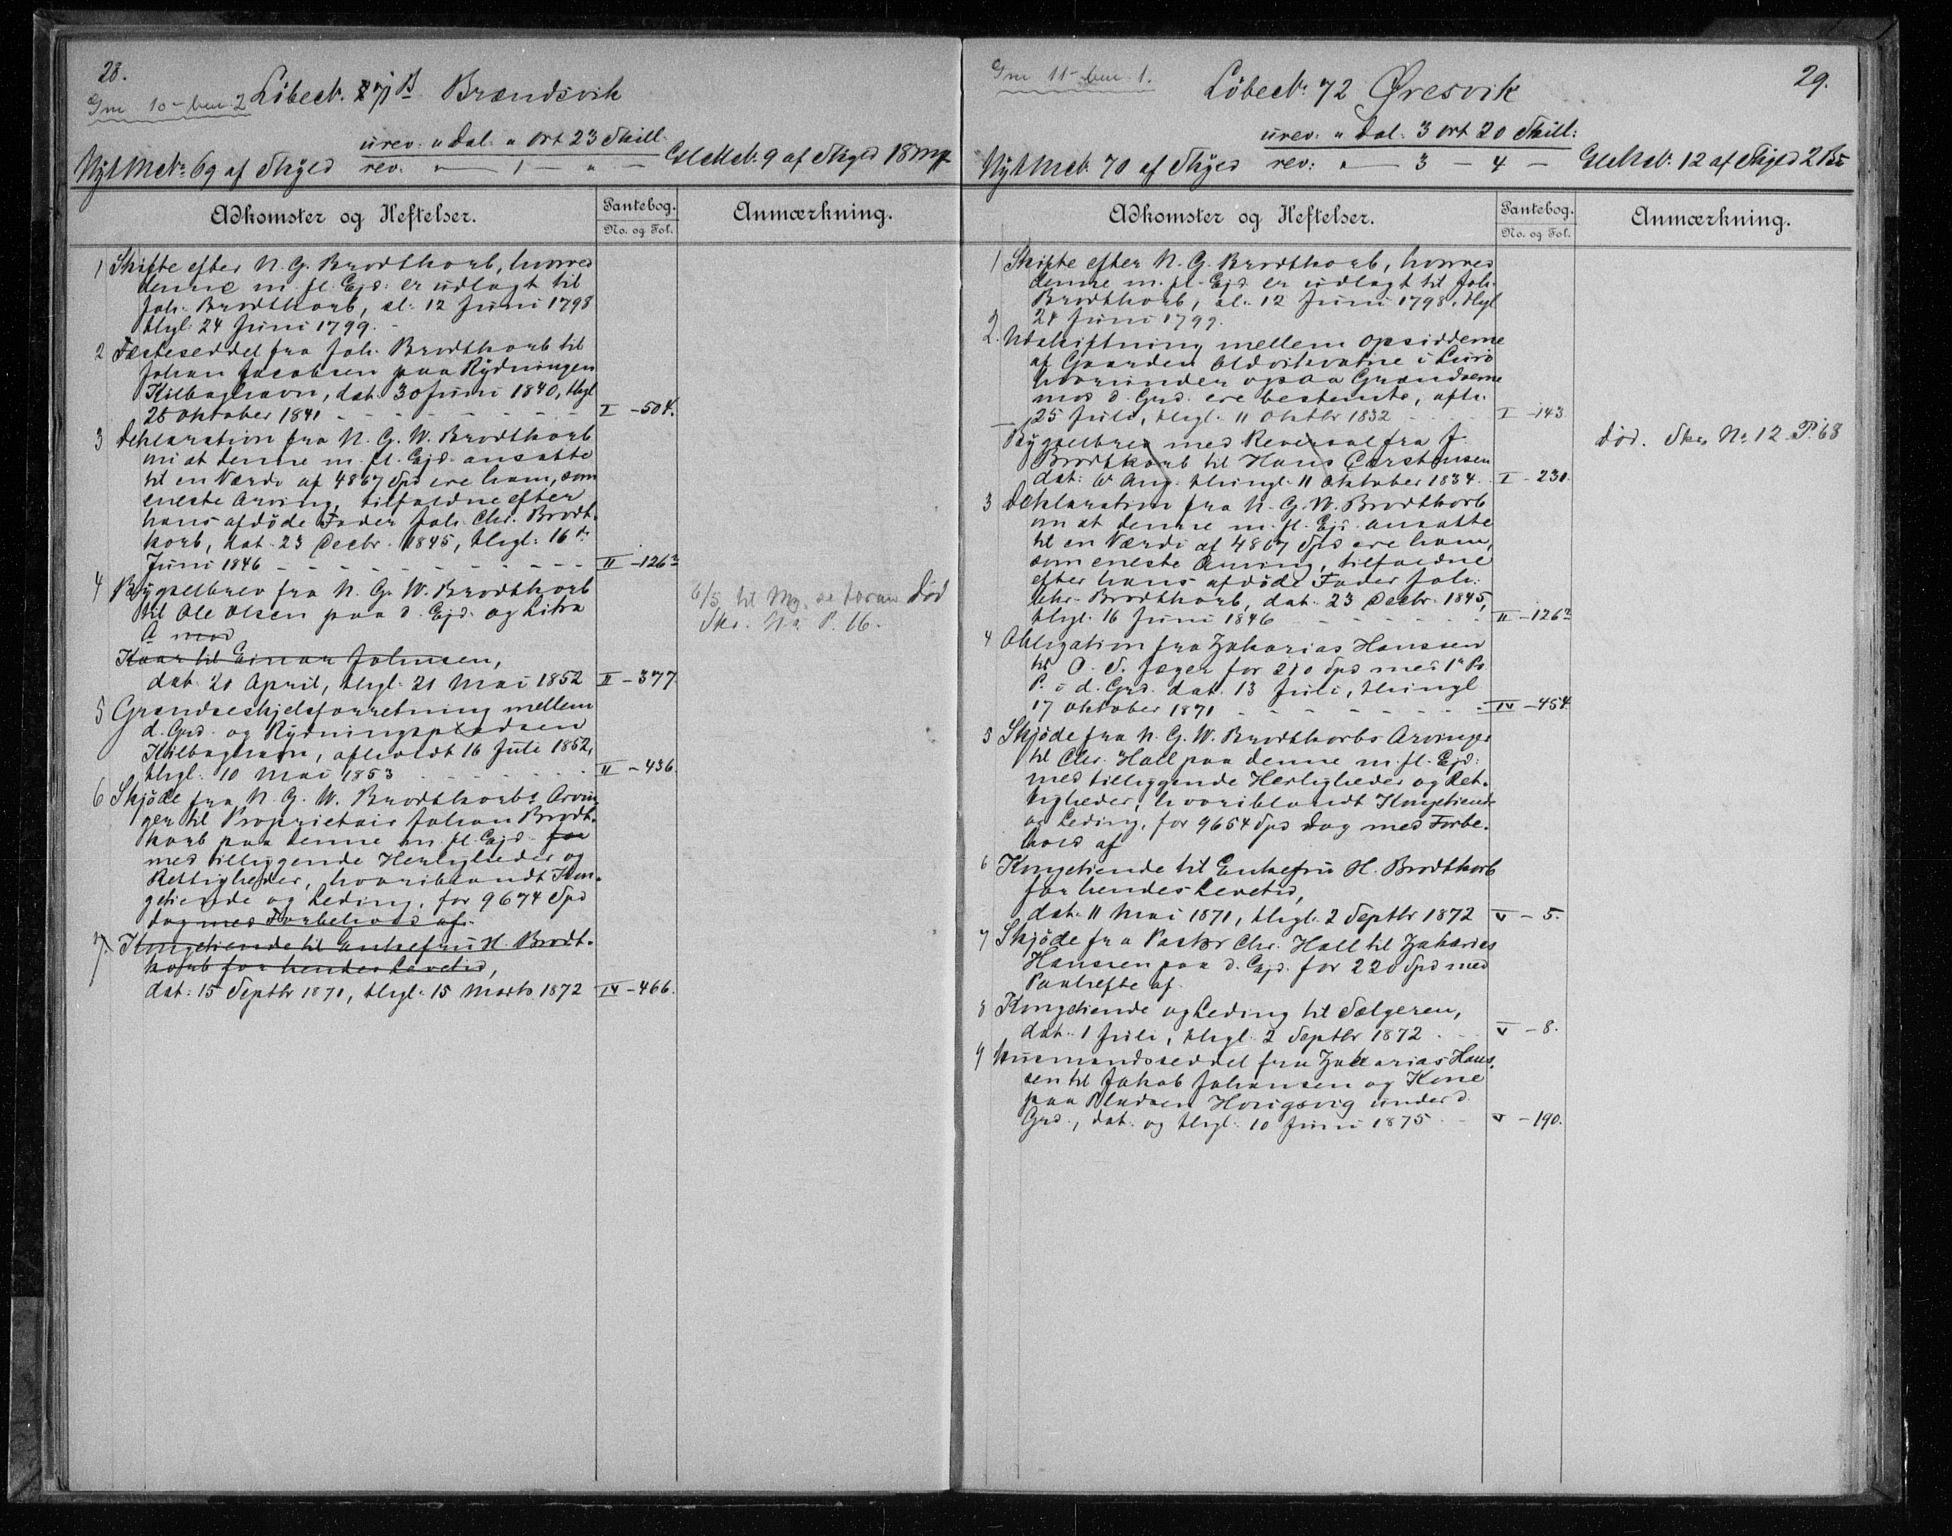 28.
Gm 10 - bm 2 Löbecr. 71 B Brændsvik
urev: " Dal. " ort 23 Skill.
Nyt Mat. 69 af Skyld rev: " — 1 — " — Gl Mat. 9 af Skyld 18 mp
Adkomster og Heftelser.
Pantebog.
No. og Fol.
Anmærkning.
1 Skifte efter N. G. Brodtkorb, hvorved
denne m. fl. Ejd. er udlagt til
Joh. Brodtkorb, sl. 12 Juni 1798
thgl. 24 Juni 1799.
2 Fæsteseddel fra Joh. Brodtkorb til
Johan Jacobsen paa Rydningen
Kilboghavn, dat. 30 Juni 1840, thgl
25 Oktober 1841 - - - - - - I - 504.
3 Deklaration fra N. G. W. Brodtkorb
om at denne m. fl. Ejd. ansatte
til en Værdi af 4867 Spd ere ham, som
eneste Arving, tilfaldne efter
hans afdøde Fader Joh. Chr. Brodt-
korb, dat. 23 Decbr. 1845, thgl. 16de
Juni 1846 - - - - - - - II - 126
4 Bygselbrev fra N. G. W. Brodtkorb
til Ole Olsen paa d. Ejd. og Litra
A mod
Kaar til Einar Johnsen,
dat. 21 April, thgl. 21 Mai 1852 II - 377
6/5 til Mg. se foran Död
Skr. No P. 16.
5 Grændseskjelsforretning mellem
d. Grd. og Rydningspladsen
Kilboghavn, afholdt 16 Juli 1852,
thgl. 10 Mai 1853 II - 436.
6 Skjöde fra N. G. W. Brodtkorbs Arvin-
ger til Proprietair Johan Brodt-
korb paa denne m fl. Ejd. for
med tilliggende Herligheder og
Rettigheder, hvoriblandt Kon-
getiende og Leding, for 9674 Spd
dog med Forbehold af
7. Kongetiende til Enkefru H. Brodt-
korb for hendes Levetid,
dat. 15 Septbr 1871, thgl. 15 Marts 1872 IV - 466.
29.
Gm 11 - bm 1. Löbecr. 72 Øresvik
urev: " Dal. 3 ort 20 Skill:
Nyt Mat. 70 af Skyld rev: " — 3 — 4 — Gl Mat. 12 af Skyld 2 Bp
Adkomster og Heftelser.
Pantebog.
No. og Fol.
Anmærkning.
1 Skifte efter N. G. Brodtkorb, hvorved
denne m. fl. Ejd er udlagt til Joh.
Brodtkorb, sl. 12 Juni 1798, thgl
24 Juni 1799.
2. Udskiftning mellem Opsidderne
af Gaarden Aldersvatne i Lurö
hvorunder ogsaa Grændserne
mod d. Grd. ere bestemte, afh.
25 Juli, thgl. 11 Oktbr 1832 I - 143
— Bygselbrev med Reversal fra J.
Brodtkorb til Hans Carstensen
dat: 10 Aug. thingl. 11 Oktober 1834. I - 230.
Död. Skr. No 12 P. 63
3 Deklaration fra N. G. W. Brodtkorb
om at denne m. fl. Ejd. ansatte
til en Værdi af 4867 Spd ere ham,
som eneste Arving, tilfaldne
efter hans afdøde Fader Joh.
Chr. Brodtkorb, dat. 23 Decbr. 1845,
thgl. 16 Juni 1846 - - - - II - 126
4 Obligation fra Zakarias Hanssen
til O. S. Jæger for 210 Spd med 1ste Pr.
P. i d. Grd. dat. 13 Juli, thingl
17 Oktober 1871 - - - - - - IV - 454
5 Skjöde fra N. G. W. Brodtkorbs Arvinger
til Chr. Hall paa denne m. fl. Ejd:
med tilliggende Herligheder og Ret-
tigheder, hvoriblandt Kongetiende
og Leding, for 9654 Spd dog med Forbe-
hold af
6 Kongetiende til Enkefru H. Brodtkorb
for hendes Levetid,
dat. 11 Mai 1871, thgl. 2 Septbr 1872 V - 5.
7 Skjöde fra Pastor Chr. Hall til Zakarias
Hanssen paa d. Ejd. for 220 Spd med
Paahefte af
8 Kongetiende og Leding til Sælgeren,
dat. 1 Juli, thgl. 2 Septbr 1872 V - 8.
9 Husmandsseddel fra Zakarias Hans-
sen til Jakob Johansen og Kone
paa Pladsen Horigsvig under d.
Grd., dat. og thgl. 10 Juni 1875 V - 190.